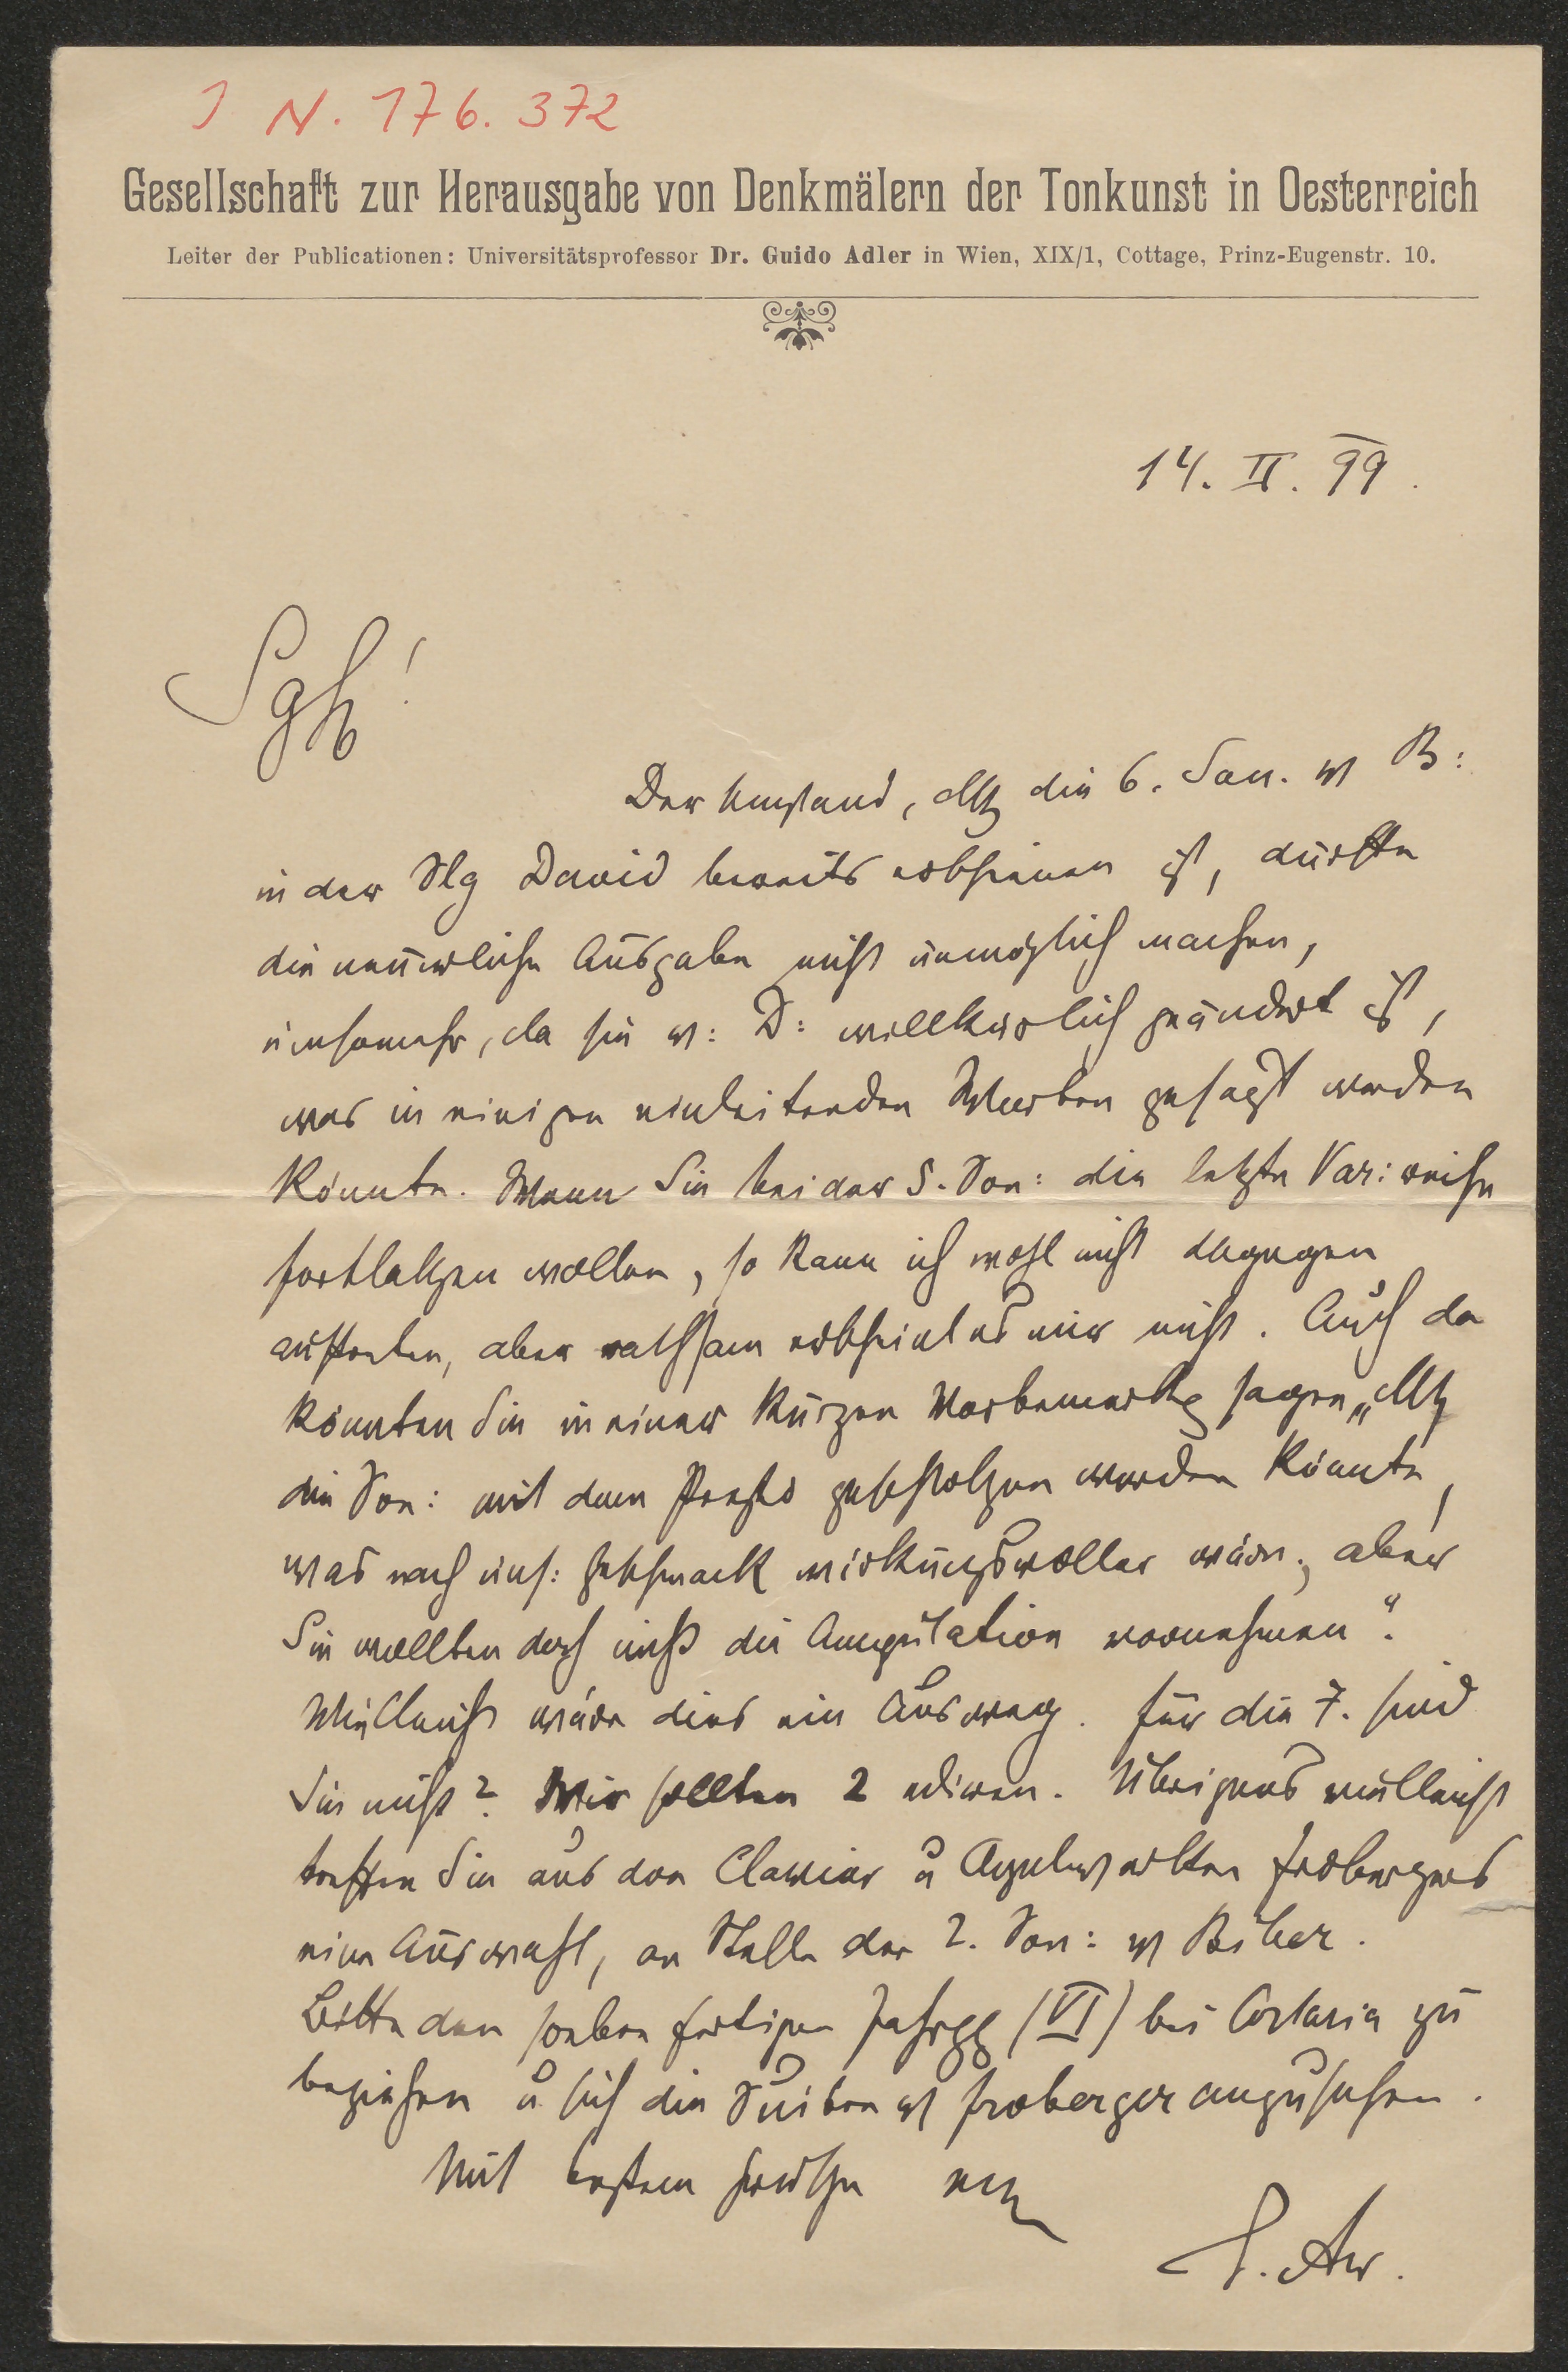 J N. 176. 372
Gesellschaft zur Herausgabe von Denkmälern der Tonkunst in Oesterreich
Leiter der Publicationen: Universitätsprofessor Dr. Guido Adler in Wien, XIX/1, Cottage, Prinz-Eugenstr. 10.
14. II. 99.
Sgh!
Der Umstand, daß die 6. Son. v B:
in der Slg David bereits erschienen ist, dürfte
die neuerliche Ausgabe nicht unmöglich machen,
umsomehr, da sie v: D: willkürlich geändert ist,
was in einigen einleitenden Worten gesagt werden
könnte. Wenn Sie bei der 5. Son: die letzte Var: reihe
fortlassen wollen, so kann ich wohl nicht dagegen
auftreten, aber rathsam erscheint es mir nicht. Auch da
könnten Sie in einer kurzen Vorbemerkg sagen „daß
die Son: mit dem Presto geschlossen werden könnte,
was nach uns: Geschmack wirkungsvoller wäre; aber
Sie wollten doch nicht die Amputation vornehmen".
Vielleicht wäre dies ein Ausweg. Für die 7. sind
Sie nicht? Wir sollten 2 ediren. Übrigens vielleicht
treffen Sie aus den Clavier u Orgelwerken Frobergers
eine Auswahl, an Stelle der 2. Son: v Biber.
Bitte den soeben fertigen Jahrgg (VI) bei Artaria zu
beziehen u. sich die Suiten v Froberger anzusehen.
Mit bestem Gruße
G. Adler.